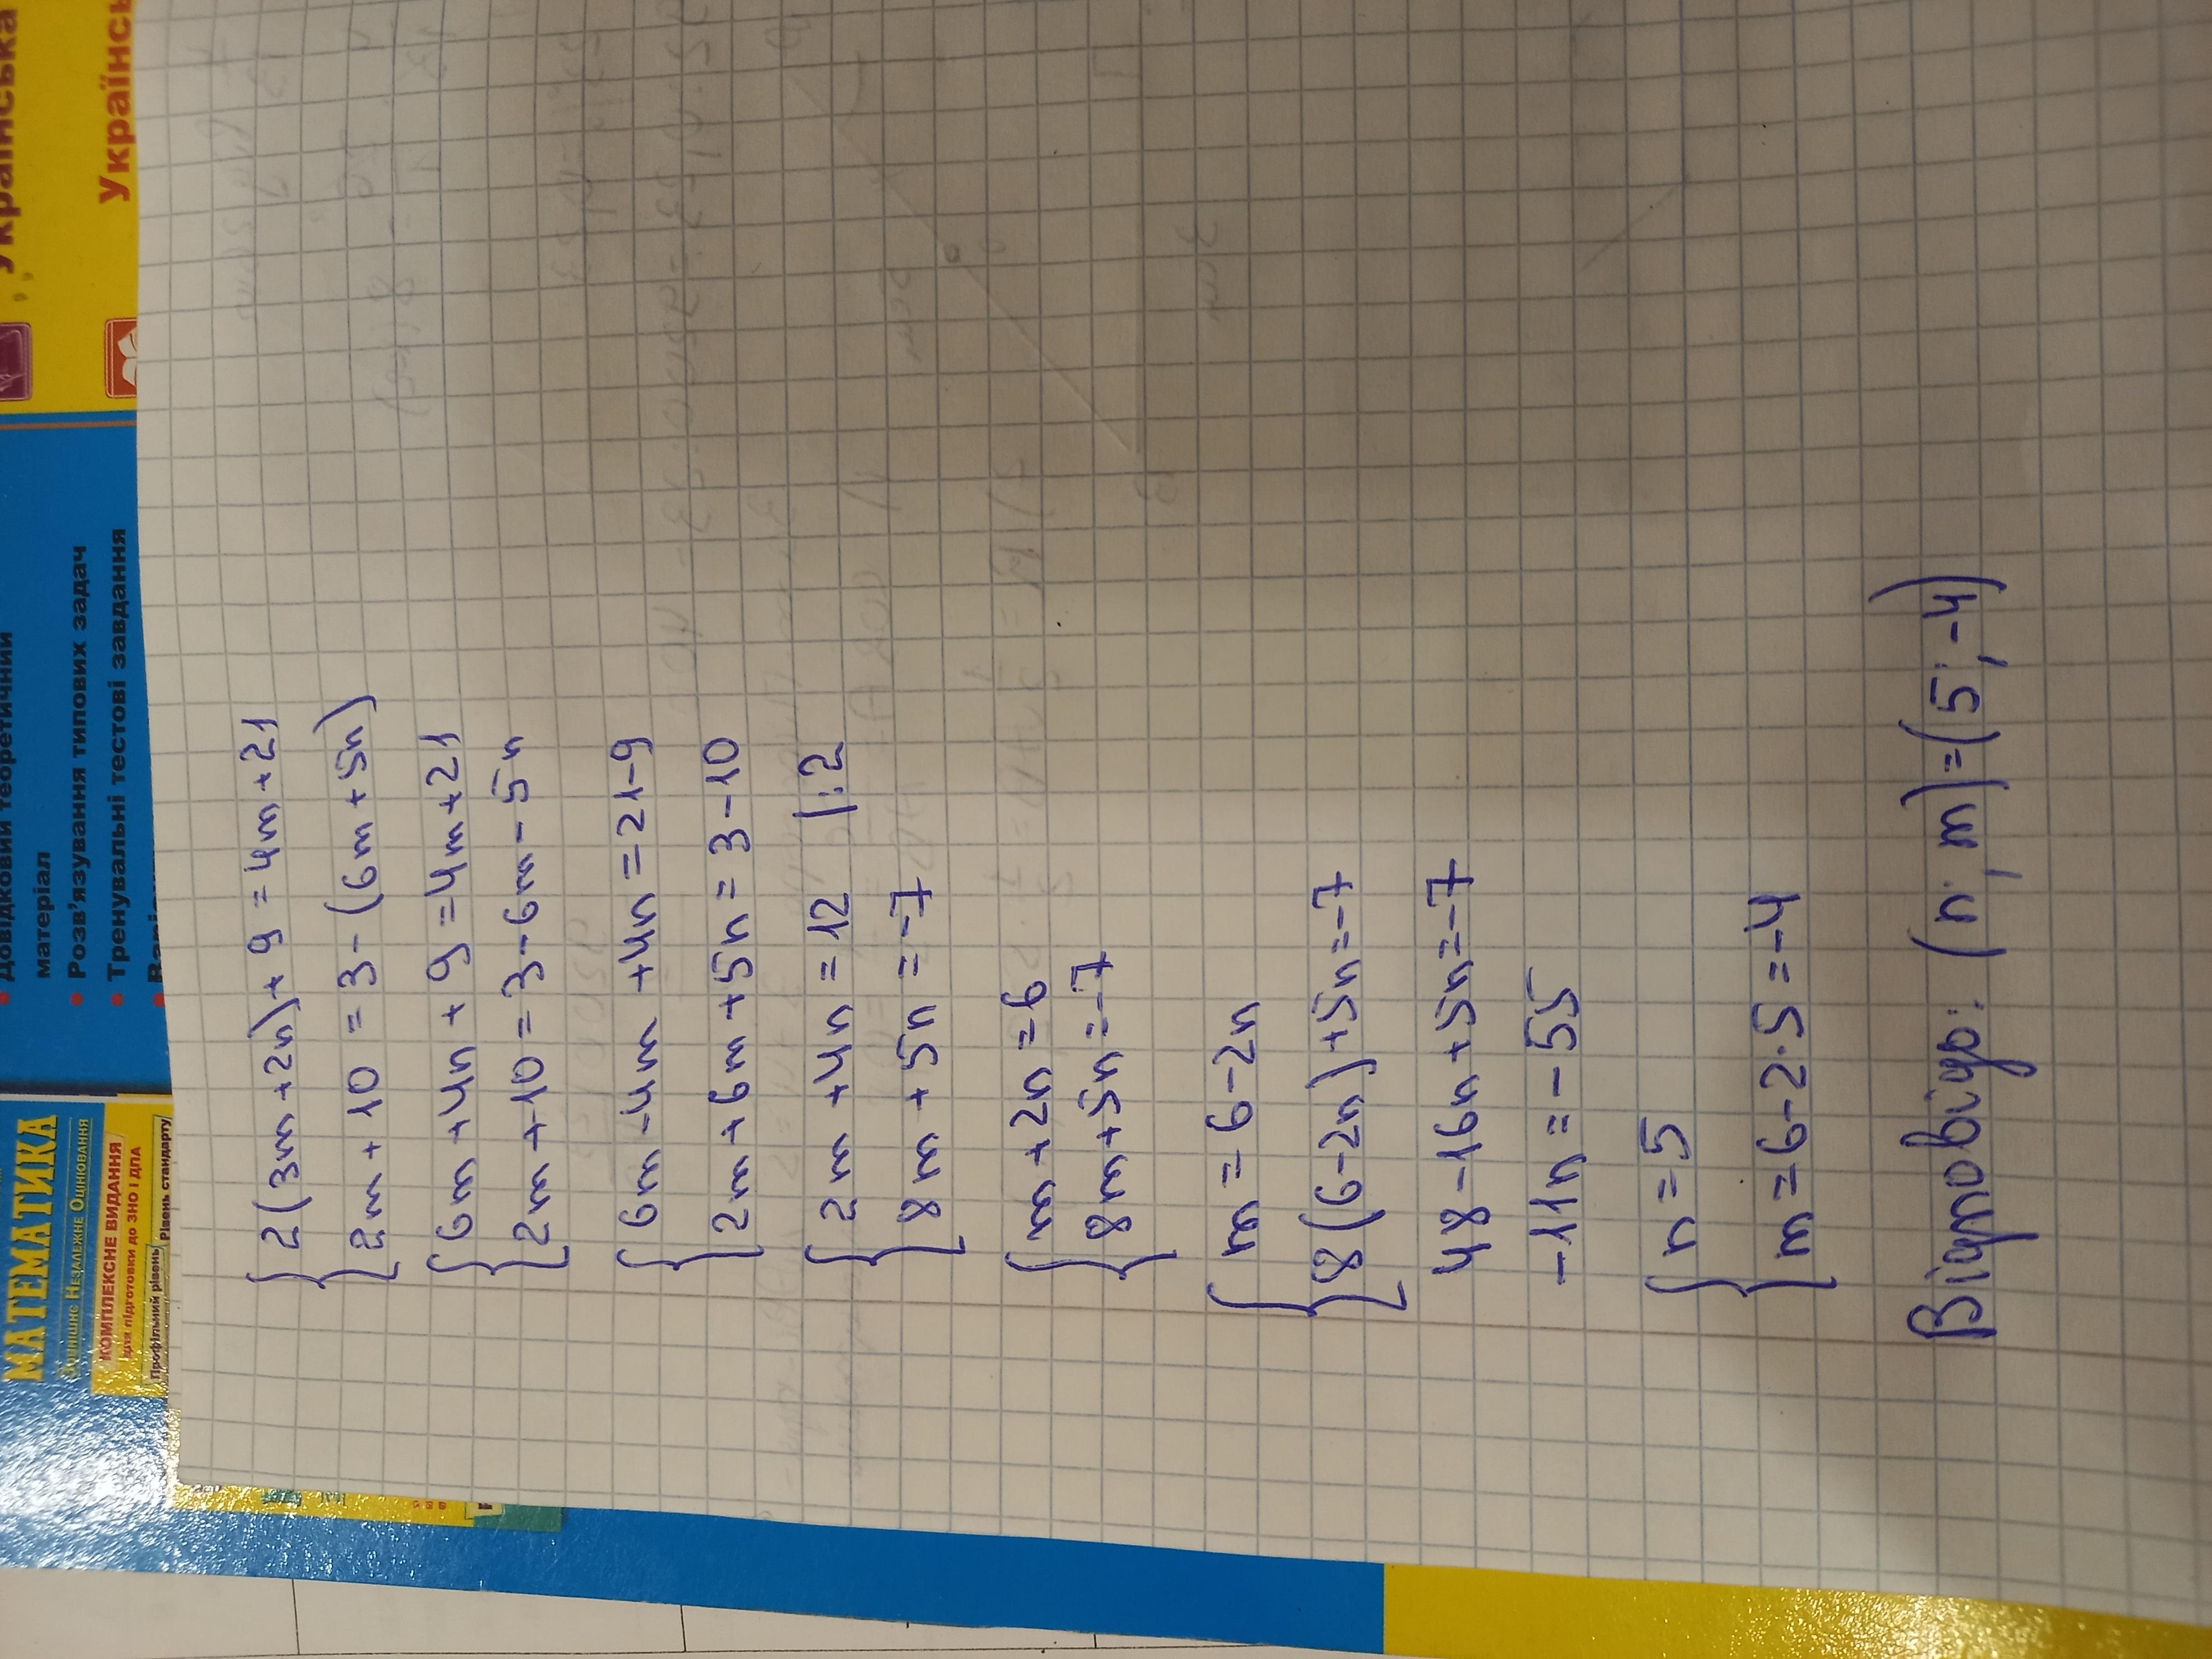 МАТЕМАТИКА
КОМПЛЕКСНЕ ВИДАННЯ
для підготовки до ЗНО і ДПА
Профільний рівень
Рівень стандарту
матеріал
• Розв'язування типових задач
• Тренувальні тестові завдання
Українська
2(3m+2n)+9=4m+21
2m+10=3-(6m+5n)
6m+4n+9=4m+21
2m+10=3-6m-5n
6m-4m+4n=21-9
2m+6m+5n=3-10
2m+4n=12 |:2
8m+5n=-7
m+2n=6
8m+5n=-7
m=6-2n
8(6-2n)+5n=-7
48-16n+5n=-7
-11n=-55
n=5
m=6-2·5=-4
Відповідь: (n; m)=(5;-4)